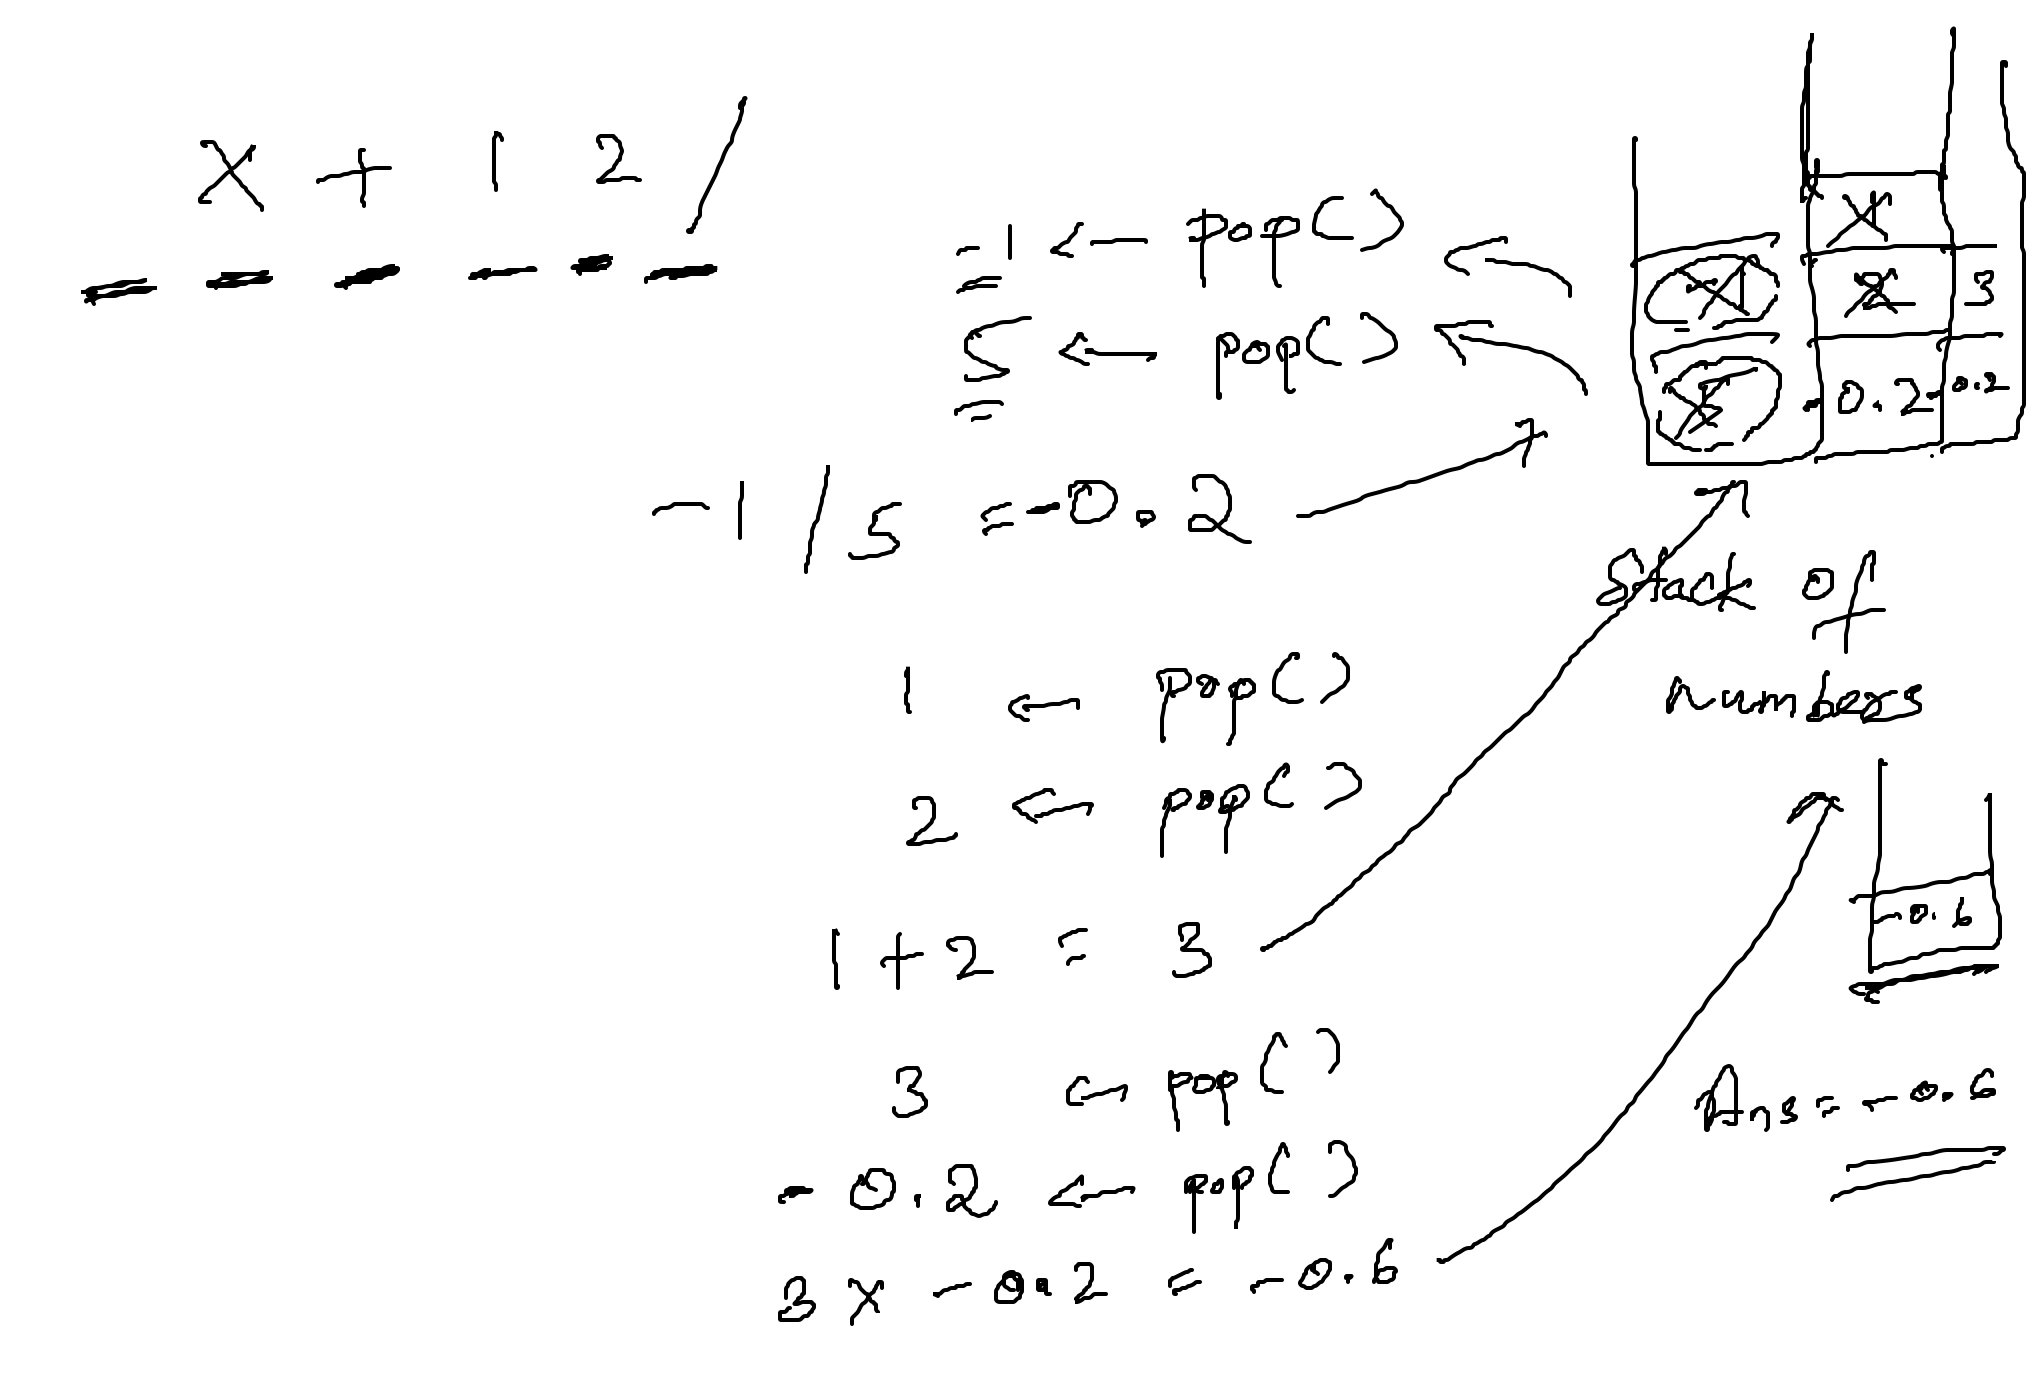 x + 1 2 /
-1 ← pop()
5 ← pop()
-1 / 5 = -0.2
1 ← pop()
2 ← pop()
1 + 2 = 3
3 ← pop()
-0.2 ← pop()
3 x -0.2 = -0.6
-1
5
1
2
-0.2
3
-0.2
Stack of
numbers
-0.6
Ans = -0.6